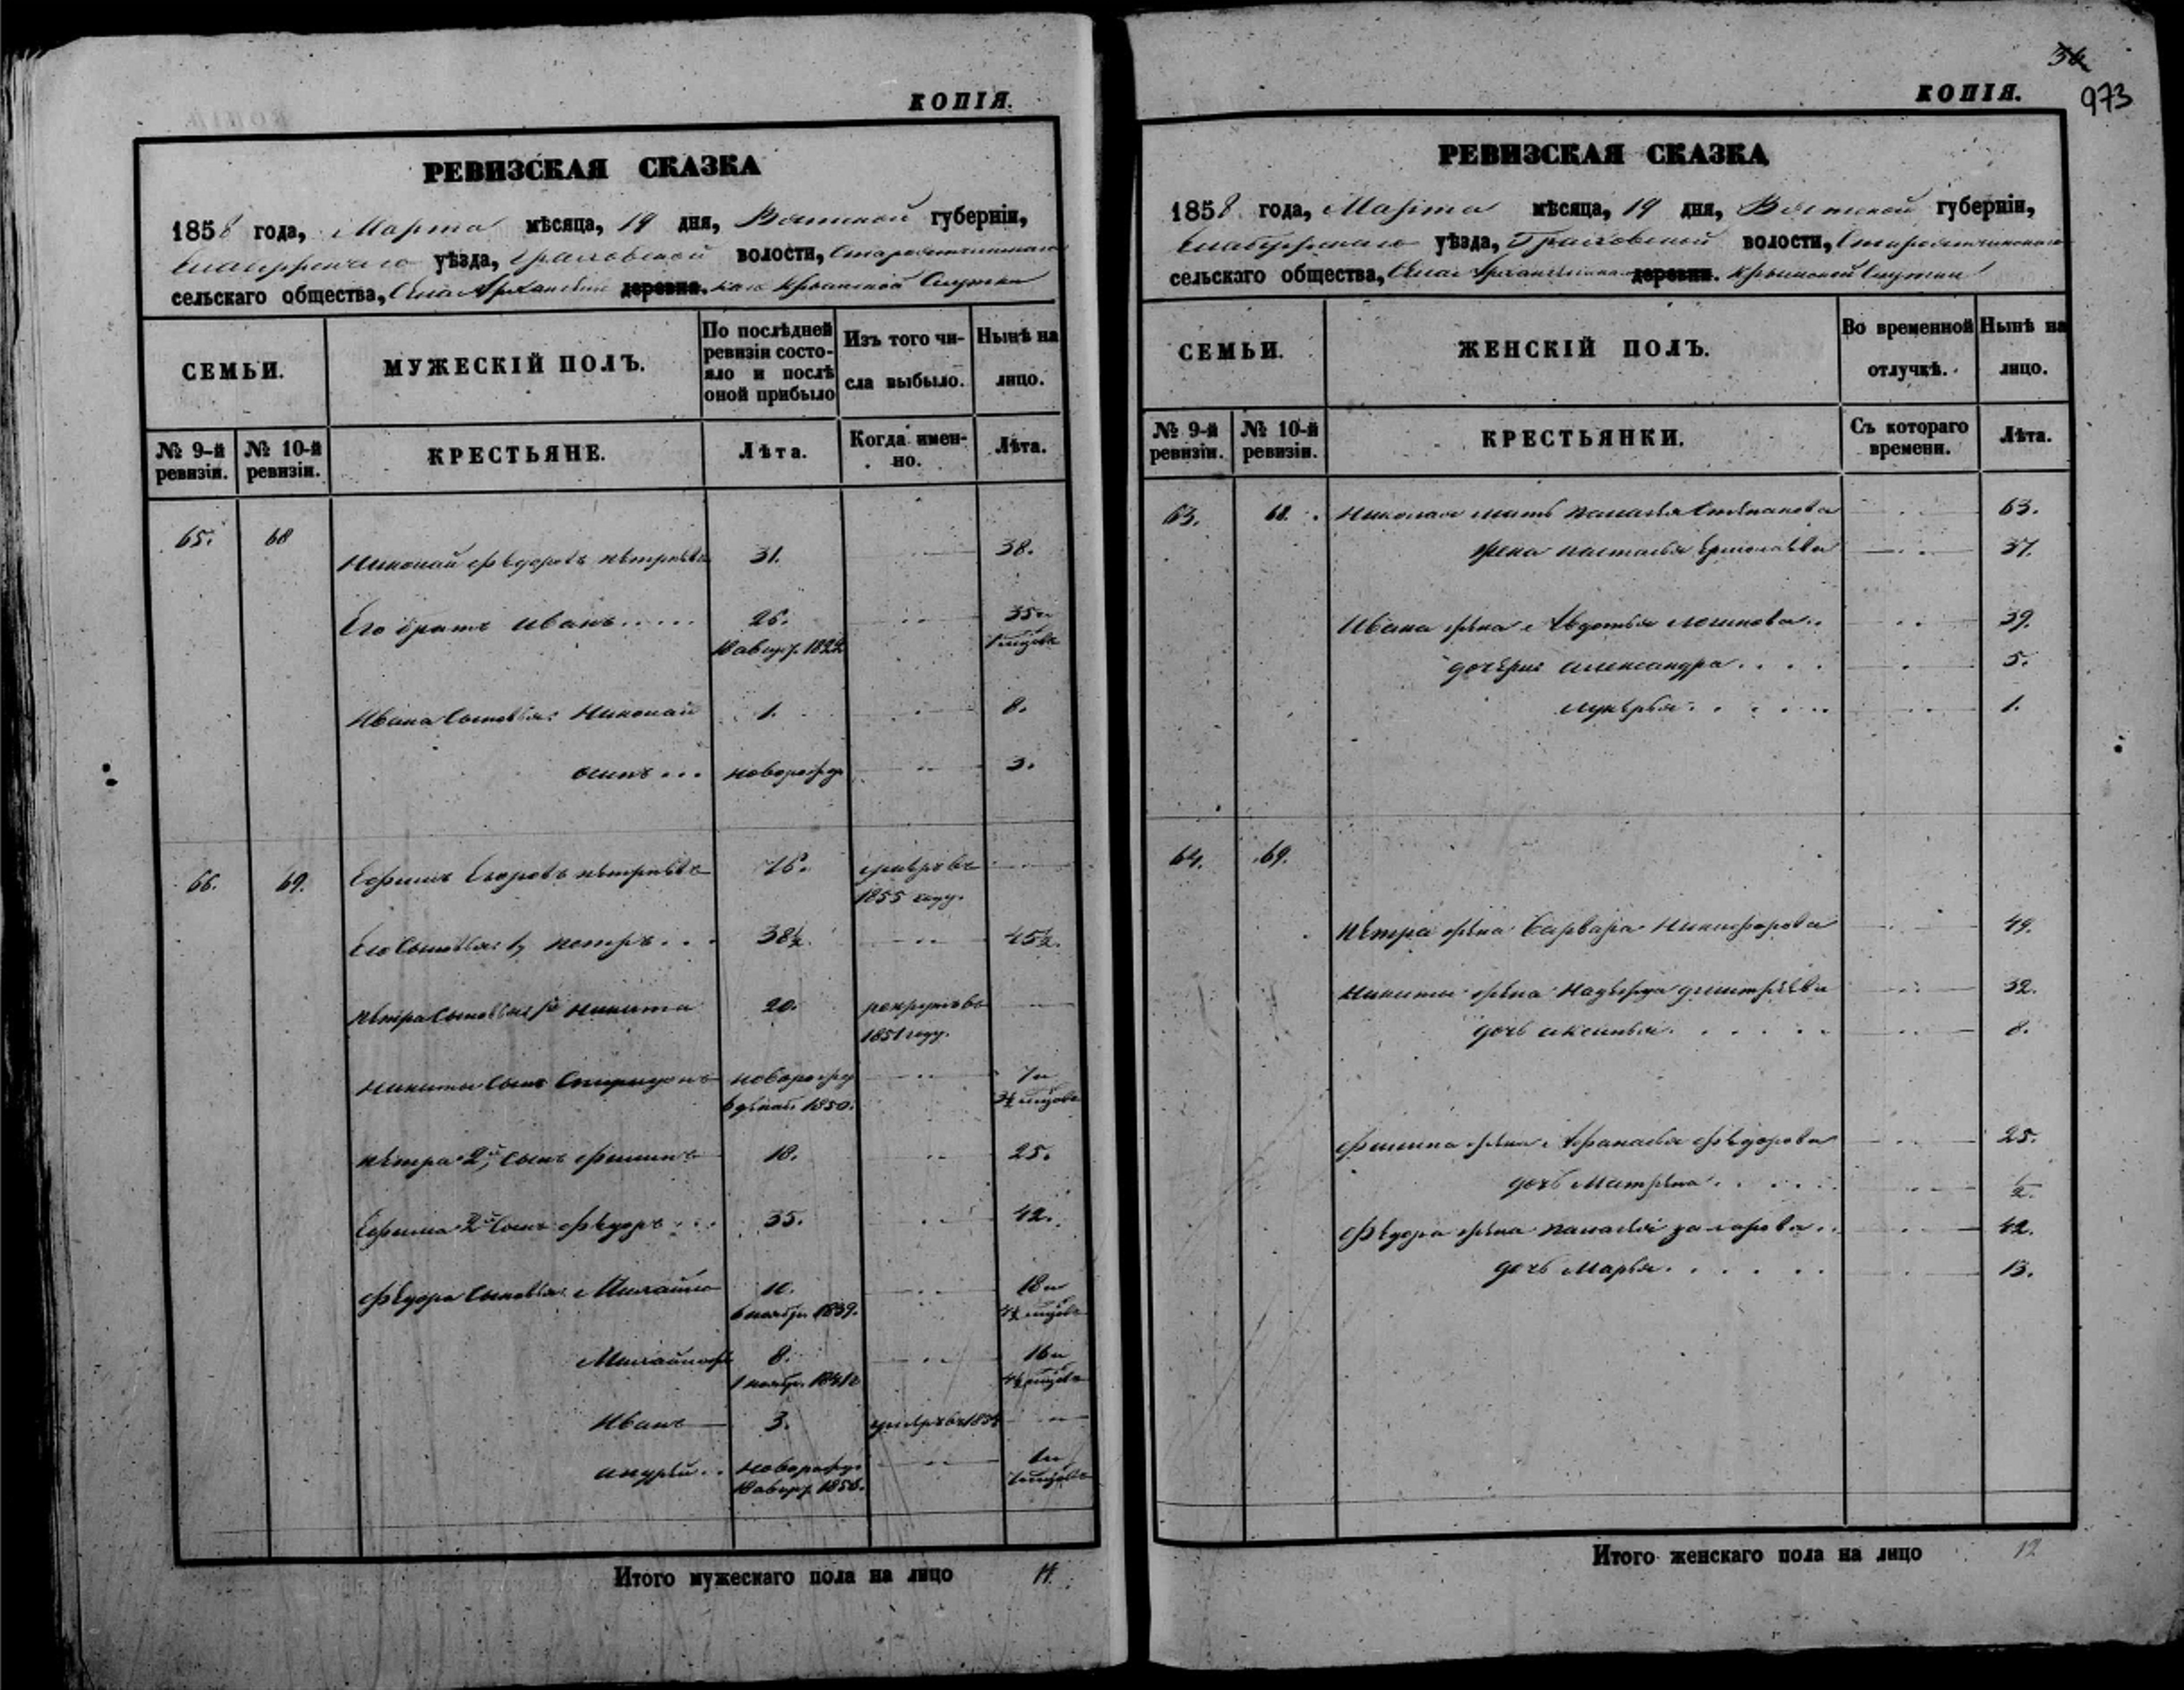 КОПІЯ.
РЕВИЗСКАЯ СКАЗКА
1858 года, Марта мѣсяца, 19 дня, Вятской губерніи,
Елабужскаго уѣзда, Граховской волости,
сельскаго общества, Села деревни. Крымской Слудки
СЕМЬИ.
МУЖЕСКІЙ ПОЛЪ.
По послѣдней ревизіи состояло и послѣ оной прибыло
Изъ того числа выбыло.
Нынѣ на лицо.
№ 9-й ревизіи.
№ 10-й ревизіи.
КРЕСТЬЯНЕ.
Лѣта.
Когда именно.
Лѣта.
65. 68 Николай Федоровъ Петровъ 31. 38.
Его братъ Иванъ 26. 35 и
Ивана сыновья: Николай 1. 8.
Осипъ новорожд 3.
66. 69. Ефимъ Егоровъ 76. умеръ въ
1855 году.
Его сыновья: 1, Петръ 38½. 45½.
Петра сыновья, 1й Никита 20. рекрутъ въ
1851 году.
Никиты сынъ Спиридонъ новорожд 7 и
6 декаб. 1850. 3½ месяцовъ
Петра 2й, сынъ Филипъ 18. 25.
Ефима 2й сынъ Федоръ 35. 42.
Федора сыновья: Михайло 10. 18 и
6 ноябр. 1839. 4½ месяцовъ
8. 16 и
1 ноябр. 1841 4½ месяцовъ
Иванъ 3. умеръ въ
Андрей новорожд
Итого мужескаго пола на лицо 11.
36
973
КОПІЯ.
РЕВИЗСКАЯ СКАЗКА
1858 года, Марта мѣсяца, 19 дня, Вятской губерніи,
Елабужскаго уѣзда, Граховской волости,
сельскаго общества, Села деревни. Крымской Слудки
СЕМЬИ.
ЖЕНСКІЙ ПОЛЪ.
Во временной отлучкѣ.
Нынѣ на лицо.
№ 9-й ревизіи.
№ 10-й ревизіи.
КРЕСТЬЯНКИ.
Съ котораго времени.
Лѣта.
63. 68. Николая мать Паладья Степанова 63.
жена Настасья Ермолаева 37.
Ивана жена Авдотья Логинова 39.
дочери Александра 5.
Лукерья 1.
64. 69.
Петра жена Варвара Никифорова 49.
Никиты жена Надежда Дмитріева 32.
дочь Аксинья 8.
Филипа жена Афанасья Федорова 25.
дочь Матрена ½.
Федора жена Паладья Захарова 42.
дочь Марья 13.
Итого женскаго пола на лицо 12